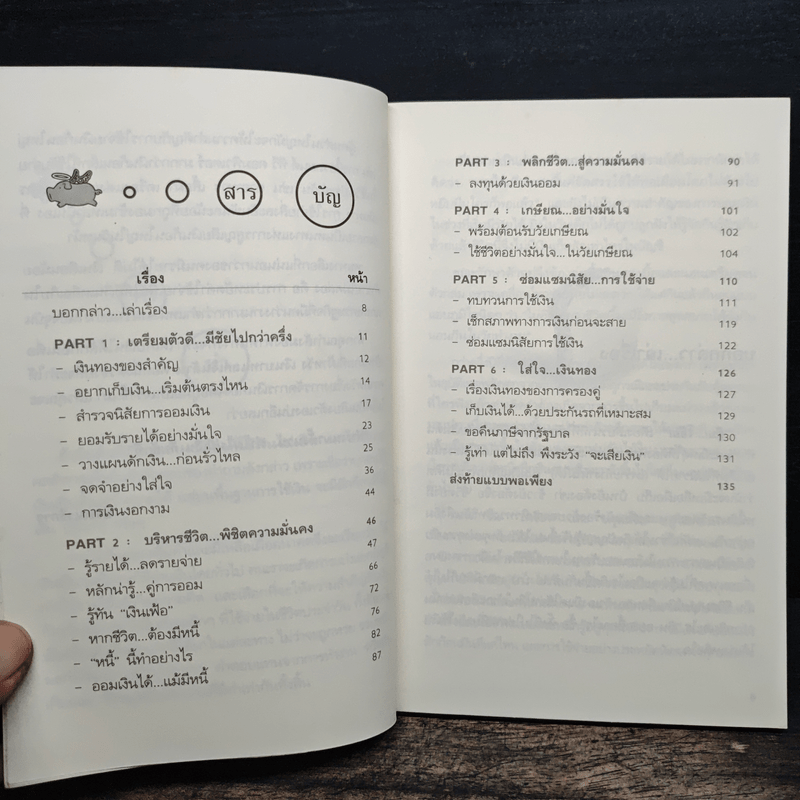 สาร บัญ
เรื่อง หน้า
บอกกล่าว...เล่าเรื่อง 8
PART 1 : เตรียมตัวดี...มีชัยไปกว่าครึ่ง 11
- เงินทองของสำคัญ 12
- อยากเก็บเงิน...เริ่มต้นตรงไหน 14
- สำรวจนิสัยการออมเงิน 17
- ยอมรับรายได้อย่างมั่นใจ 23
- วางแผนดักเงิน...ก่อนรั่วไหล 25
- จดจำอย่างใส่ใจ 36
- การเงินงอกงาม 44
PART 2 : บริหารชีวิต...พิชิตความมั่นคง 46
- รู้รายได้...ลดรายจ่าย 47
- หลักน่ารู้...คู่การออม 66
- รู้ทัน "เงินเฟ้อ" 72
- หากชีวิต...ต้องมีหนี้ 76
- "หนี้" นี้ทำอย่างไร 82
- ออมเงินได้...แม้มีหนี้ 87
PART 3 : พลิกชีวิต...สู่ความมั่นคง 90
- ลงทุนด้วยเงินออม 91
PART 4 : เกษียณ...อย่างมั่นใจ 101
- พร้อมต้อนรับวัยเกษียณ 102
- ใช้ชีวิตอย่างมั่นใจ...ในวัยเกษียณ 104
PART 5 : ซ่อมแซมนิสัย...การใช้จ่าย 110
- ทบทวนการใช้เงิน 111
- เช็กสภาพทางการเงินก่อนจะสาย 119
- ซ่อมแซมนิสัยการใช้เงิน 122
PART 6 : ใส่ใจ...เงินทอง 126
- เรื่องเงินทองของการครองคู่ 127
- เก็บเงินได้...ด้วยประกันรถที่เหมาะสม 129
- ขอคืนภาษีจากรัฐบาล 130
- รู้เท่า แต่ไม่ถึง พึงระวัง "จะเสียเงิน" 131
ส่งท้ายแบบพอเพียง 135